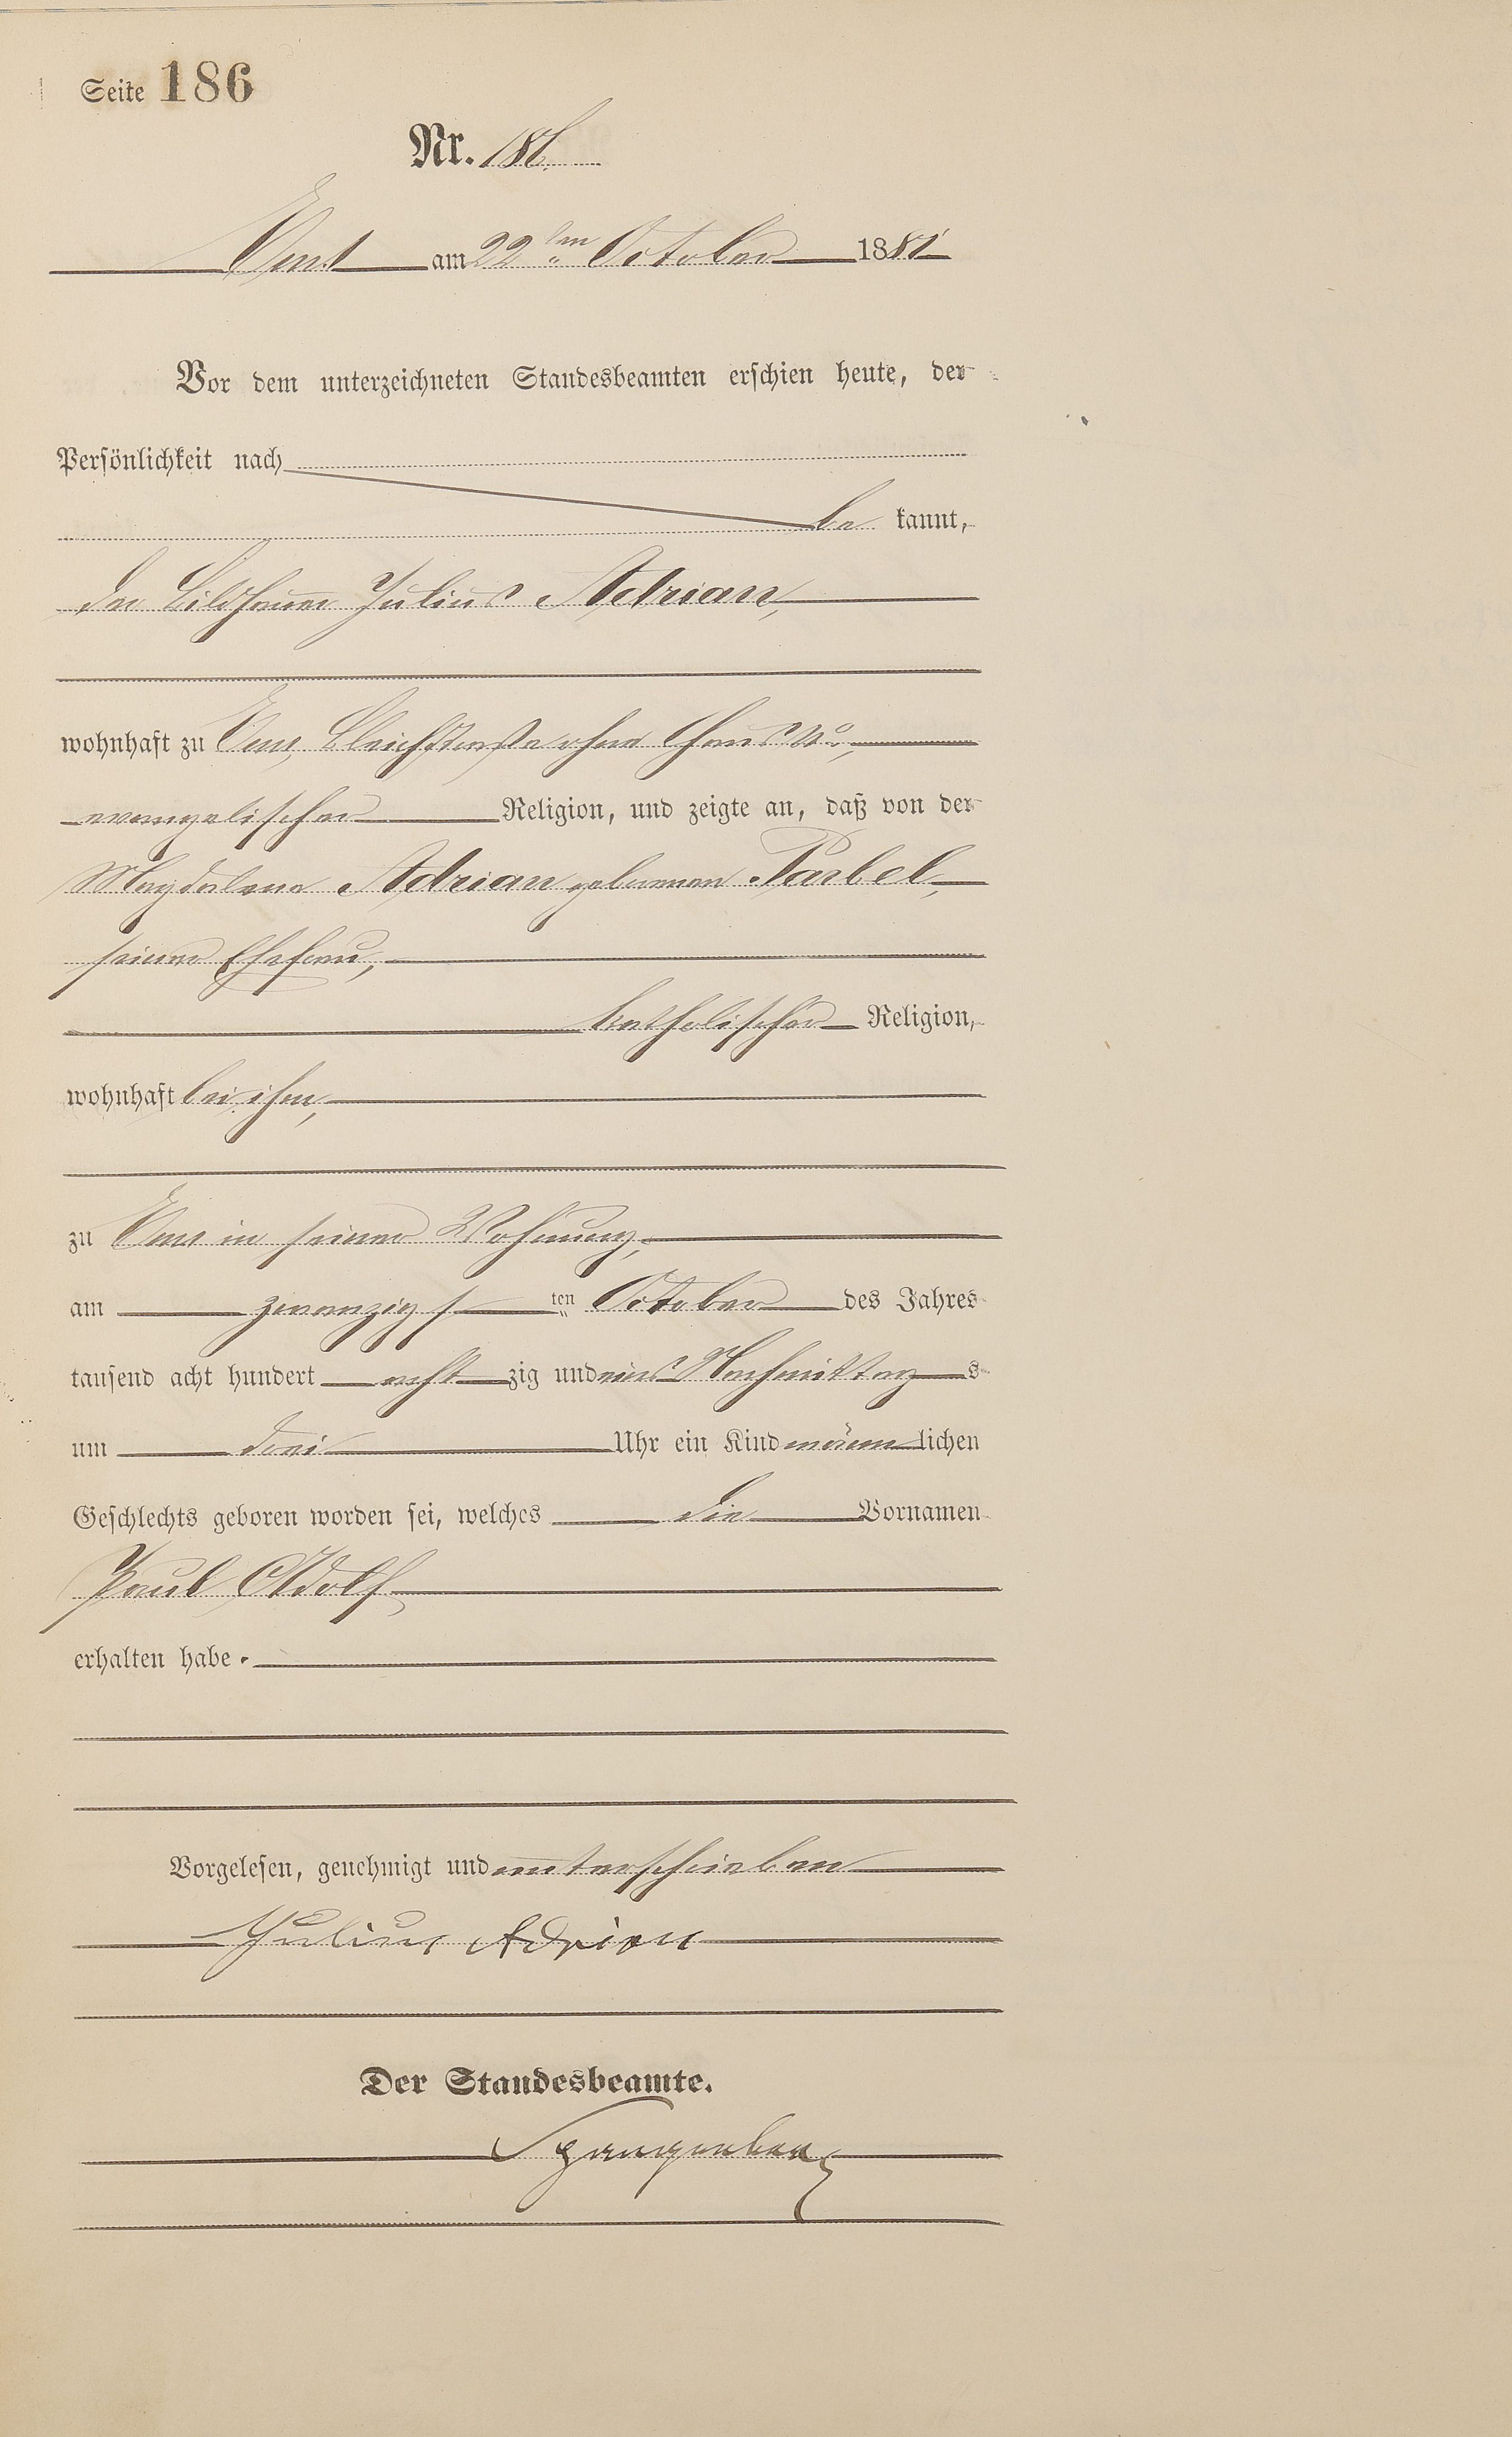 Seite 186
Nr. 186.
Ems am 22ten October 1881
Vor dem unterzeichneten Standesbeamten erschien heute, der
Persönlichkeit nach
be kannt,
der Bildhauer Julius Adrian,
wohnhaft zu Ems, Bleichstraße ohne Haus No.,
evangelischer Religion, und zeigte an, daß von der
Magdalena Adrian geborenen Parbel,
seiner Ehefrau,
katholischer Religion,
wohnhaft bei ihm,
zu Ems in seiner Wohnung,
am zwanzigs ten October des Jahres
tausend acht hundert acht zig und eins Nachmittag s
um drei Uhr ein Kind männ lichen
Geschlechts geboren worden sei, welches die Vornamen
Paul Adolf
erhalten habe.
Vorgelesen, genehmigt und unterschrieben
Julius Adrian
Der Standesbeamte.
Spangenberg